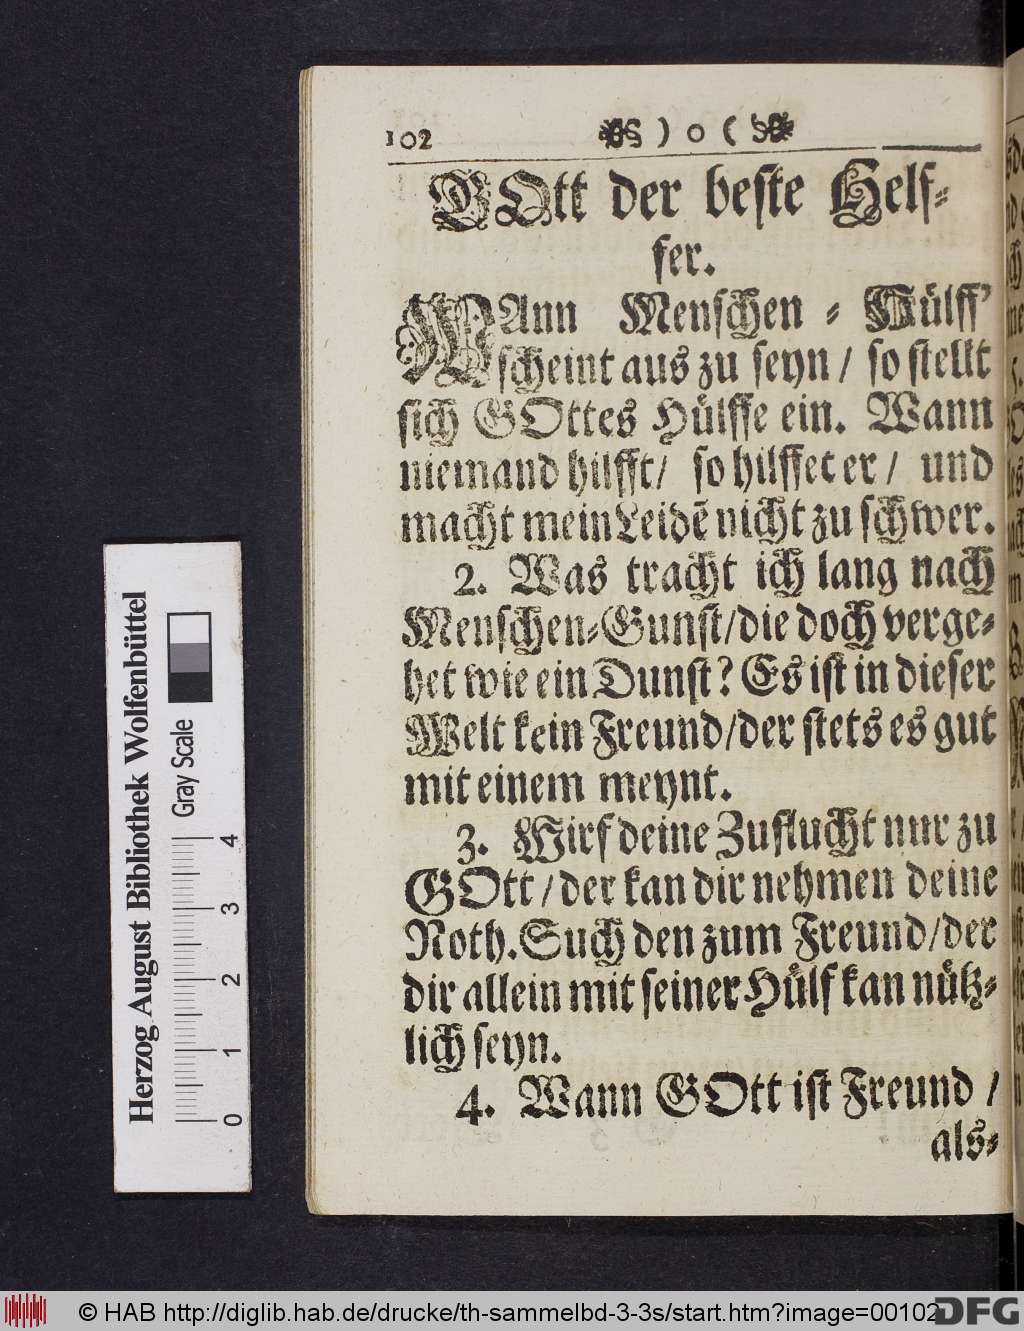 102 ) o (
GOtt der beste Helf-
fer.
WAnn Menschen - Hülff'
scheint aus zu seyn / so stellt
sich GOttes Hülffe ein. Wann
niemand hilfft / so hilffet er / und
macht mein Leidē nicht zu schwer.
2. Was tracht ich lang nach
Menschen-Gunst / die doch verge-
het wie ein Dunst? Es ist in dieser
Welt kein Freund / der stets es gut
mit einem meynt.
3. Wirf deine Zuflucht nur zu
GOtt / der kan dir nehmen deine
Noth. Such den zum Freund / der
dir allein mit seiner Hülf kan nütz-
lich seyn.
4. Wann GOtt ist Freund /
als-
Herzog August Bibliothek Wolfenbüttel
Gray Scale
0 1 2 3 4
© HAB http://diglib.hab.de/drucke/th-sammelbd-3-3s/start.htm?image=00102
DFG